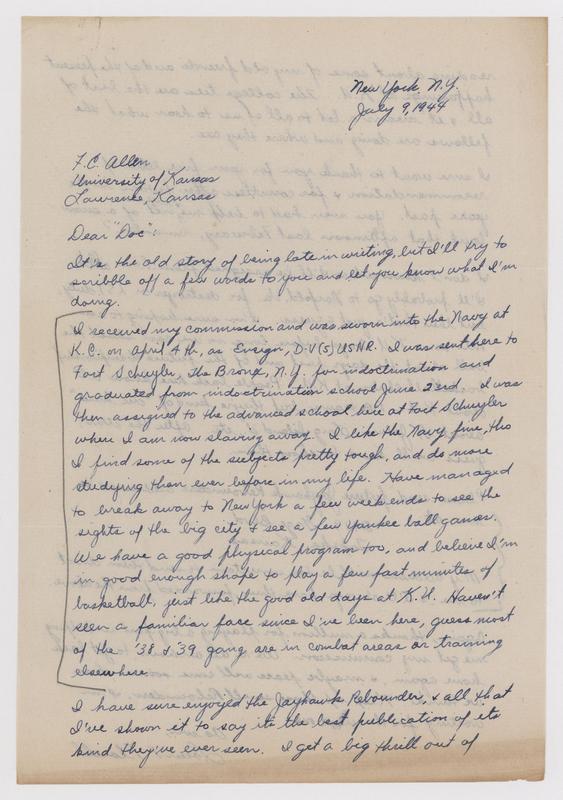 New York, N.Y.
July 9, 1944
F.C. Allen
University of Kansas
Lawrence, Kansas
Dear "Doc":
It's the old story of being late in writing, but I'll try to
scribble off a few words to you and let you know what I'm
doing.
I received my commission and was sworn into the Navy at
K.C. on April 4th, as Ensign, D-V(S) USNR. I was sent here to
Fort Schuyler, The Bronx, N.Y. for indoctrination and
graduated from indoctrination school June 23rd. I was
then assigned to the advanced school here at Fort Schuyler
where I am now slaving away. I like the Navy fine, tho
I find some of the subjects pretty tough, and do more
studying than ever before in my life. Have managed
to break away to New York a few week ends to see the
sights of the big city & see a few Yankee ball games.
We have a good physical program too, and believe I'm
in good enough shape to play a few fast minutes of
basketball, just like the good old days at K.U. Haven't
seen a familiar face since I've been here, guess most
of the '38 & '39 gang are in combat areas or training
elsewhere.
I have sure enjoyed the Jayhawk Rebounder, & all that
I've shown it to say its the best publication of its
kind they've ever seen. I get a big thrill out of